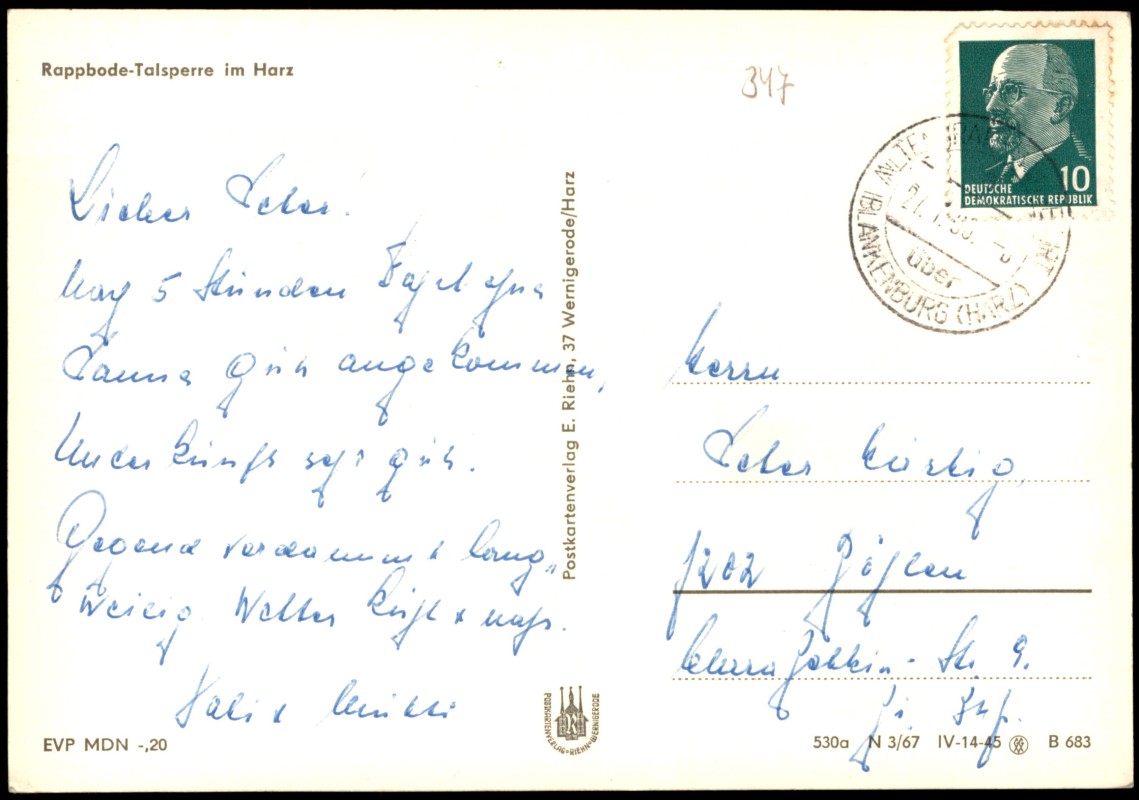 Rappbode-Talsperre im Harz
347
DEUTSCHE
DEMOKRATISCHE REPUBLIK
10
über
BLANKENBURG (HARZ)
Lieber Peter!
Nach 5 Stunden Fahrt ohne
Panne gut angekommen,
Unterkunft sehr gut.
Gegend verdammt lang„
weilig. Wetter kühl + naß.
Postkartenverlag E. Riehn, 37 Wernigerode/Harz
Herrn
Peter
7202 Böhlen
Clara Zetkin-Str. 9.
POSTKARTENVERLAG • RIEHN • WERNIGERODE
EVP MDN -,20
530a N 3/67 IV-14-45 B 683